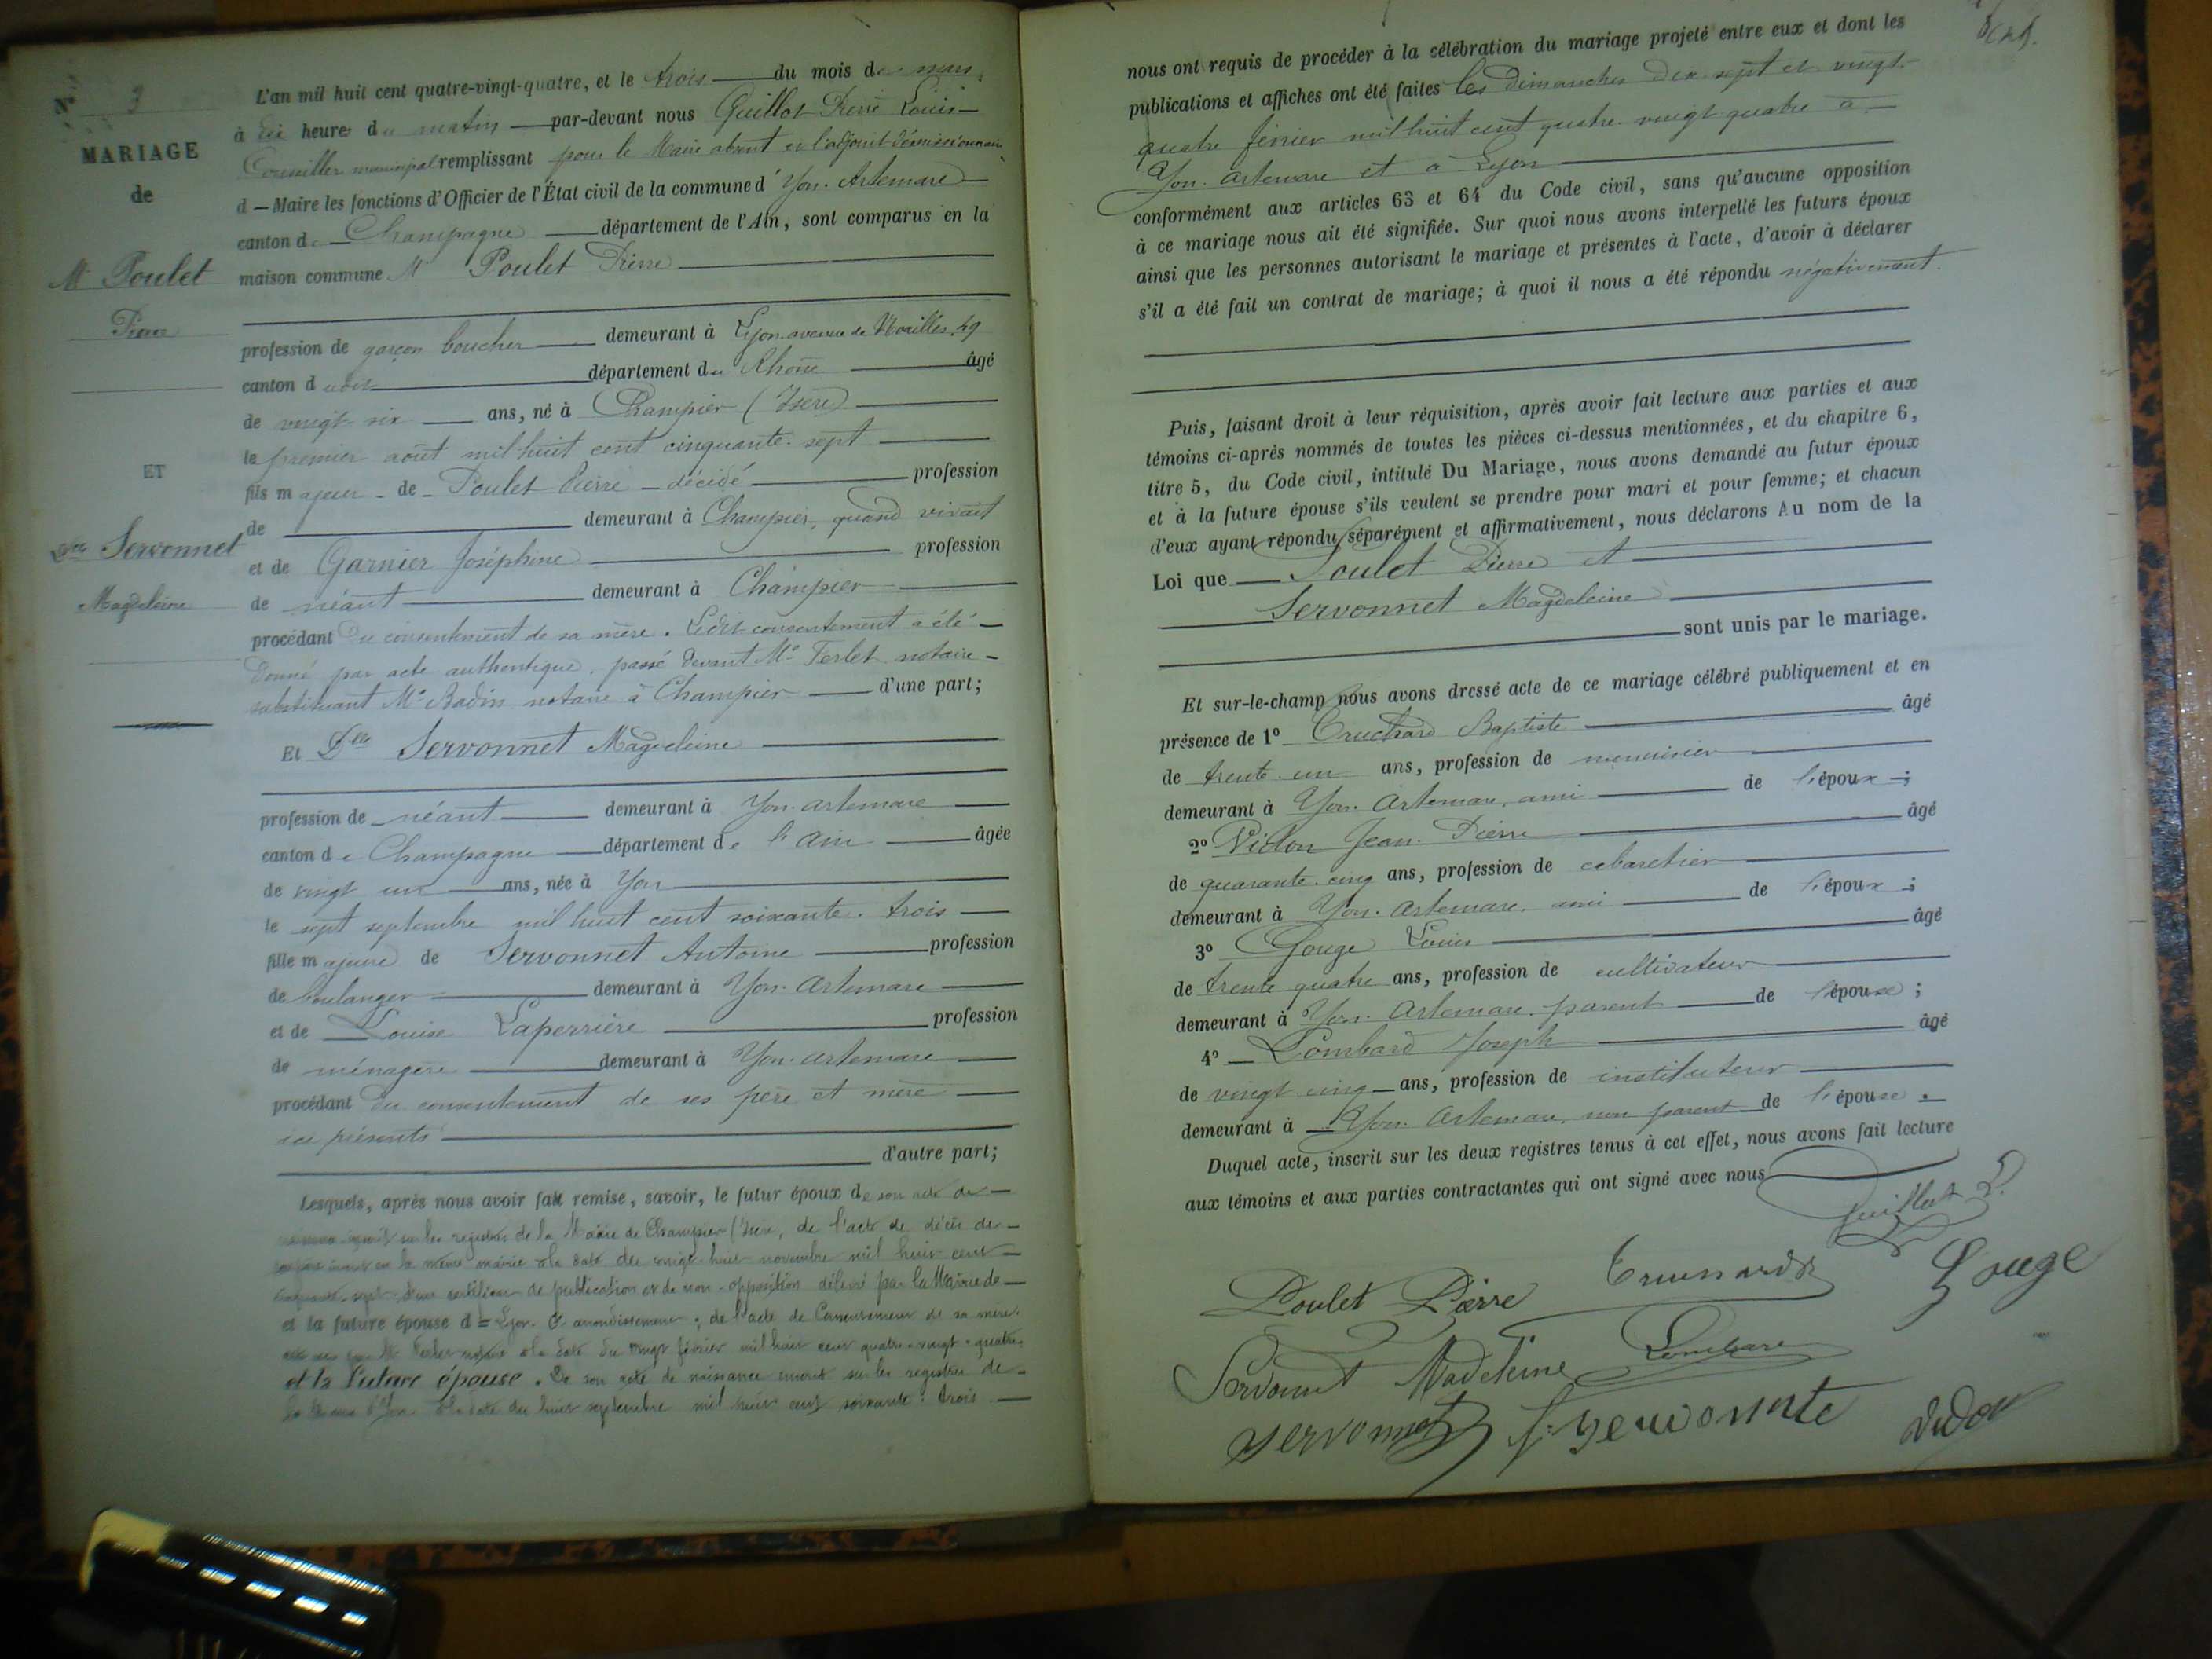 N° 3
MARIAGE
de
Mr Poulet
Pierre
ET
Dlle Servonnet
Magdeleine
L'an mil huit cent quatre-vingt-quatre, et le trois du mois de mars,
à dix heures du matin par-devant nous Guillot Pierre Louis
Conseiller municipal remplissant pour le Maire absent et l'adjoint démissionnaire
d — Maire les fonctions d'Officier de l'État civil de la commune d'Yon-Artemare
canton de Champagne département de l'Ain, sont comparus en la
maison commune M Poulet Pierre
profession de garçon boucher demeurant à Lyon avenue de Noailles, 49
canton dudit département du Rhône âgé
de vingt six ans, né à Champier (Isère)
le premier août mil huit cent cinquante-sept
fils majeur de Poulet Pierre décédé profession
de demeurant à Champier, quand vivait
et de Garnier Joséphine profession
de néant demeurant à Champier
procédant du consentement de sa mère. Ledit consentement a été
donné par acte authentique, passé devant Me Ferlet notaire
substituant Me Badin notaire à Champier d'une part;
Et Dlle Servonnet Magdeleine
profession de néant demeurant à Yon-Artemare
canton de Champagne département de l'Ain âgée
de vingt un ans, née à Yon
le sept septembre mil huit cent soixante-trois
fille majeure de Servonnet Antoine profession
de boulanger demeurant à Yon-Artemare
et de Louise Laperrière profession
de ménagère demeurant à Yon-Artemare
procédant du consentement de ses père et mère
ici présents
d'autre part;
Lesquels, après nous avoir fait remise, savoir, le futur époux de son acte de
sur les registres de la Mairie de Champier (Isère, de l'acte de décès de
la même mairie à la date du vingt-huit novembre mil huit cent
de publication et de non-opposition délivré par la Mairie de
et la future épouse d = Lyon arrondissement; de l'acte de Consentement de sa mère
notaire à la date du vingt février mil huit cent quatre-vingt-quatre
et la future épouse. De son acte de naissance inscrit sur les registres de
à la date du huit septembre mil huit cent soixante-trois
nous ont requis de procéder à la célébration du mariage projeté entre eux et dont les
publications et affiches ont été faites les dimanches dix sept et vingt
quatre février mil huit cent quatre-vingt-quatre à
Yon-Artemare et à Lyon
conformément aux articles 63 et 64 du Code civil, sans qu'aucune opposition
à ce mariage nous ait été signifiée. Sur quoi nous avons interpellé les futurs époux
ainsi que les personnes autorisant le mariage et présentes à l'acte, d'avoir à déclarer
s'il a été fait un contrat de mariage; à quoi il nous a été répondu négativement.
Puis, faisant droit à leur réquisition, après avoir fait lecture aux parties et aux
témoins ci-après nommés de toutes les pièces ci-dessus mentionnées, et du chapitre 6,
titre 5, du Code civil, intitulé Du Mariage, nous avons demandé au futur époux
et à la future épouse s'ils veulent se prendre pour mari et pour femme; et chacun
d'eux ayant répondu séparément et affirmativement, nous déclarons Au nom de la
Loi que Poulet Pierre et
Servonnet Magdeleine
sont unis par le mariage.
Et sur-le-champ nous avons dressé acte de ce mariage célébré publiquement et en
présence de 1° Truchard Baptiste âgé
de trente un ans, profession de menuisier
demeurant à Yon-Artemare, ami de l'époux;
2° Vidon Jean-Pierre âgé
de quarante-cinq ans, profession de cabaretier
demeurant à Yon-Artemare, ami de l'époux;
3° Gouge Louis âgé
de trente quatre ans, profession de cultivateur
demeurant à Yon-Artemare, parent de l'épouse;
4° Lombard Joseph âgé
de vingt cinq ans, profession de instituteur
demeurant à Yon-Artemare, non parent de l'épouse.
Duquel acte, inscrit sur les deux registres tenus à cet effet, nous avons fait lecture
aux témoins et aux parties contractantes qui ont signé avec nous
Guillot
Poulet Pierre
Gouge
Servonnet Madeleine
Lombard
Servonnet
Vidon